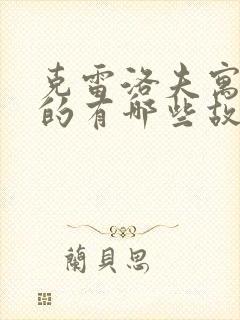 克雷洛夫寓
的有哪些故
蘭貝思